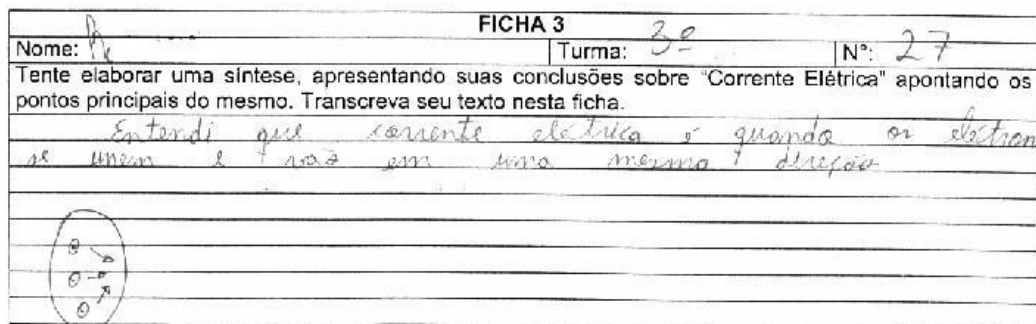 FICHA 3
Nome: Turma: 3º Nº: 27
Tente elaborar uma síntese, apresentando suas conclusões sobre "Corrente Elétrica" apontando os
pontos principais do mesmo. Transcreva seu texto nesta ficha.
Entendi que corrente elétrica é quando os elétron
se unem e vão em uma mesma direção